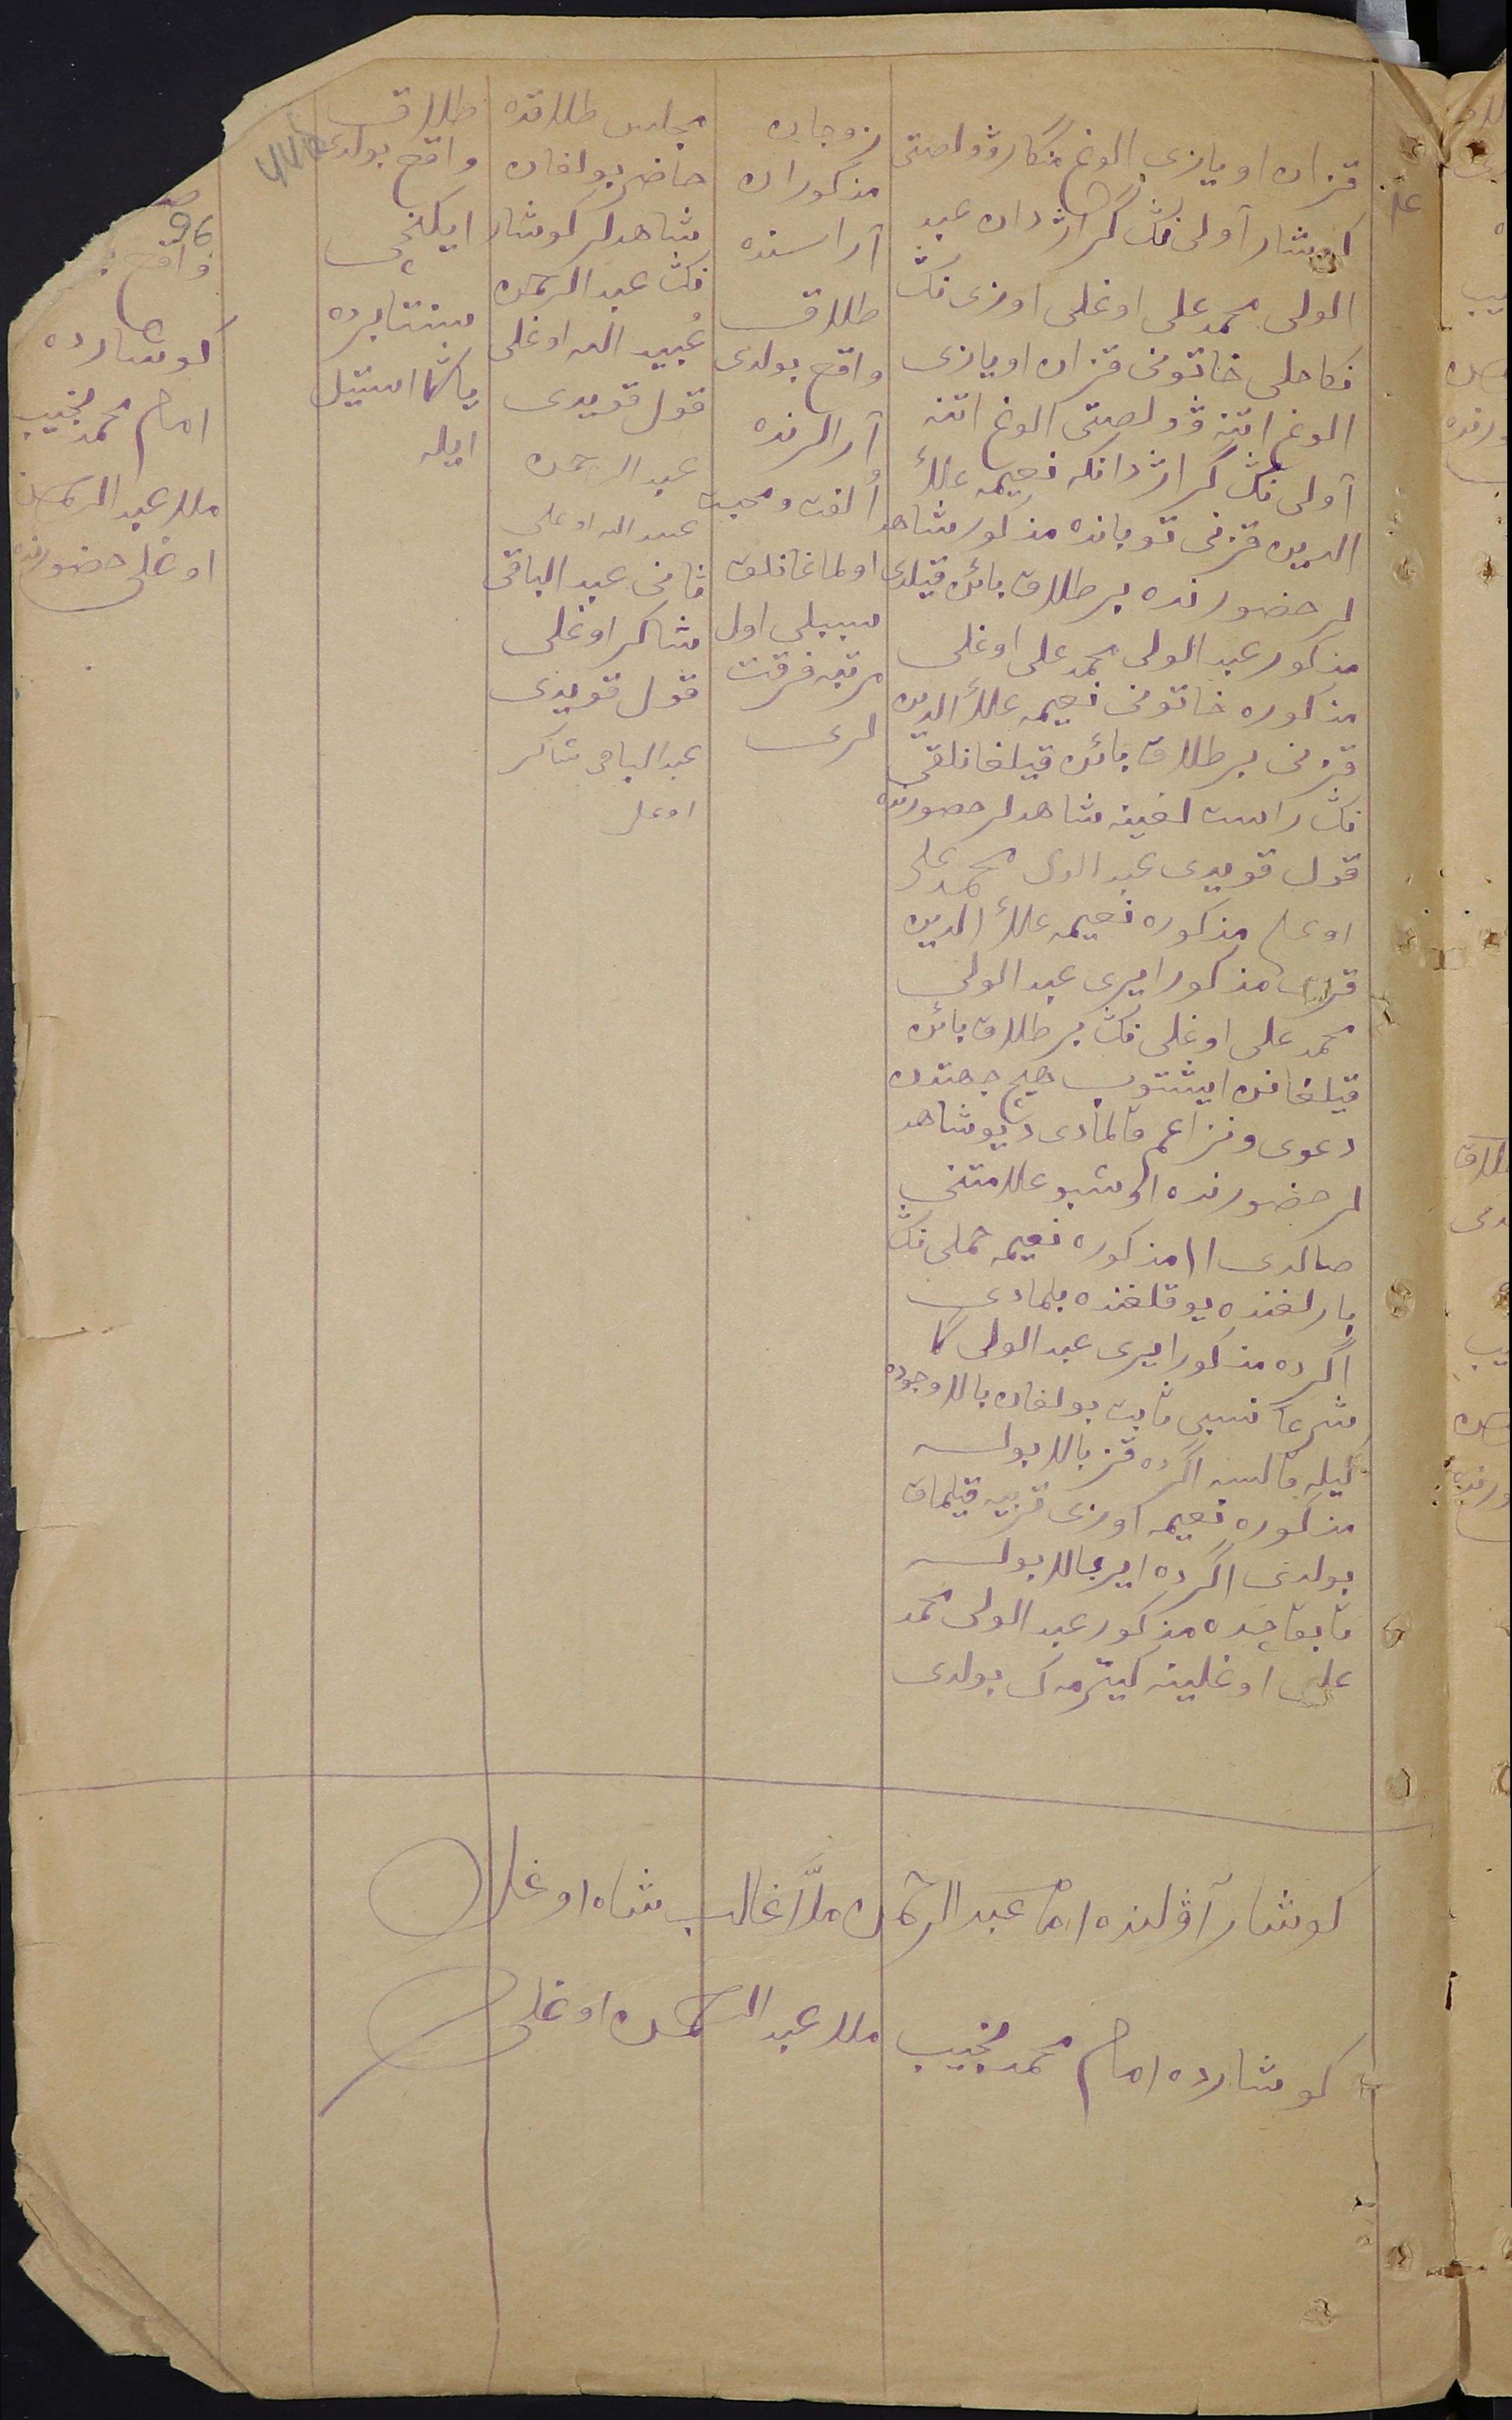 قزان اويازى الوغ منگار ۋولصتى
كوشار آولى نڭ گراژدان عبد
الولى محمد على اوغلى اوزى نڭ
نكاحلى خاتونى قزان اويازى
الوغ اتنه ۋولصتى الوغ اتنه
آولى نڭ گراژدانكه نعيمه علاء
الدين قزنى توبانده مذكور شاهد
لر حضورنده بر طلاق بائن قيلدى
مذكور عبد الولى محمد على اوغلى
مذكوره خاتونى نعيمه علاء الدين
قزنى بر طلاق بائن قيلغانلقى
نڭ راست لغينه شاهدلر حضورنده
قول قويدى عبد الولى محمد على
اوغلى مذكوره نعيمه علاء الدين
قزى مذكور ايرى عبد الولى
محمد على اوغلى نڭ بر طلاق بائن
قيلغانن ايشتوب هيچ جهتدن
دعوى ونزاعم قالمادى ديو شاهد
لر حضورنده اوشبو علامتنى
صالدى ااا مذكوره نعيمه حملى نڭ
بارلغنده يوقلغنده بلمادى
اگرده مذكور ايرى عبد الولى كا
شرعا نسبى ثابت بولغان بالا وجوده
كيله قالسه اگرده قز بالا بولسه
مذكوره نعيمه اوزى تربيه قيلماق
بولدى اگرده اير بالا بولسه
تابقاچده مذكور عبد الولى محمد
على اوغلينه كيترمه ك بولدى
زوجان
مذكوران
آراسنده
طلاق
واقع بولدى
آرالرنده
ألفت ومحبت
اولماغانلق
سببلى اول
مرتبه فرقت
لرى
مجلس طلاقده
حاضر بولغان
شاهدلر كوشار
نڭ عبد الرحمن
عُبيد الله اوغلى
قول قويدى
عبد الرحمن
عبيد الله اوغلى
ثانى عبد الباقى
شاكر اوغلى
قول قويدى
عبد الباقى شاكر
اوغلى
طلاق
واقع بولدى
ايكنچى
سنتابرده
ياڭا استيل
ايله
96
واقع
كوشارده
امام محمد نجيب
ملا عبد الرحمن
اوغلى حضورنده
كوشار آۋلنده امام عبد الرحمن ملّا غالب شاه اوغلى
كوشارده امام محمد نجيب ملا عبد الرحمن اوغلى